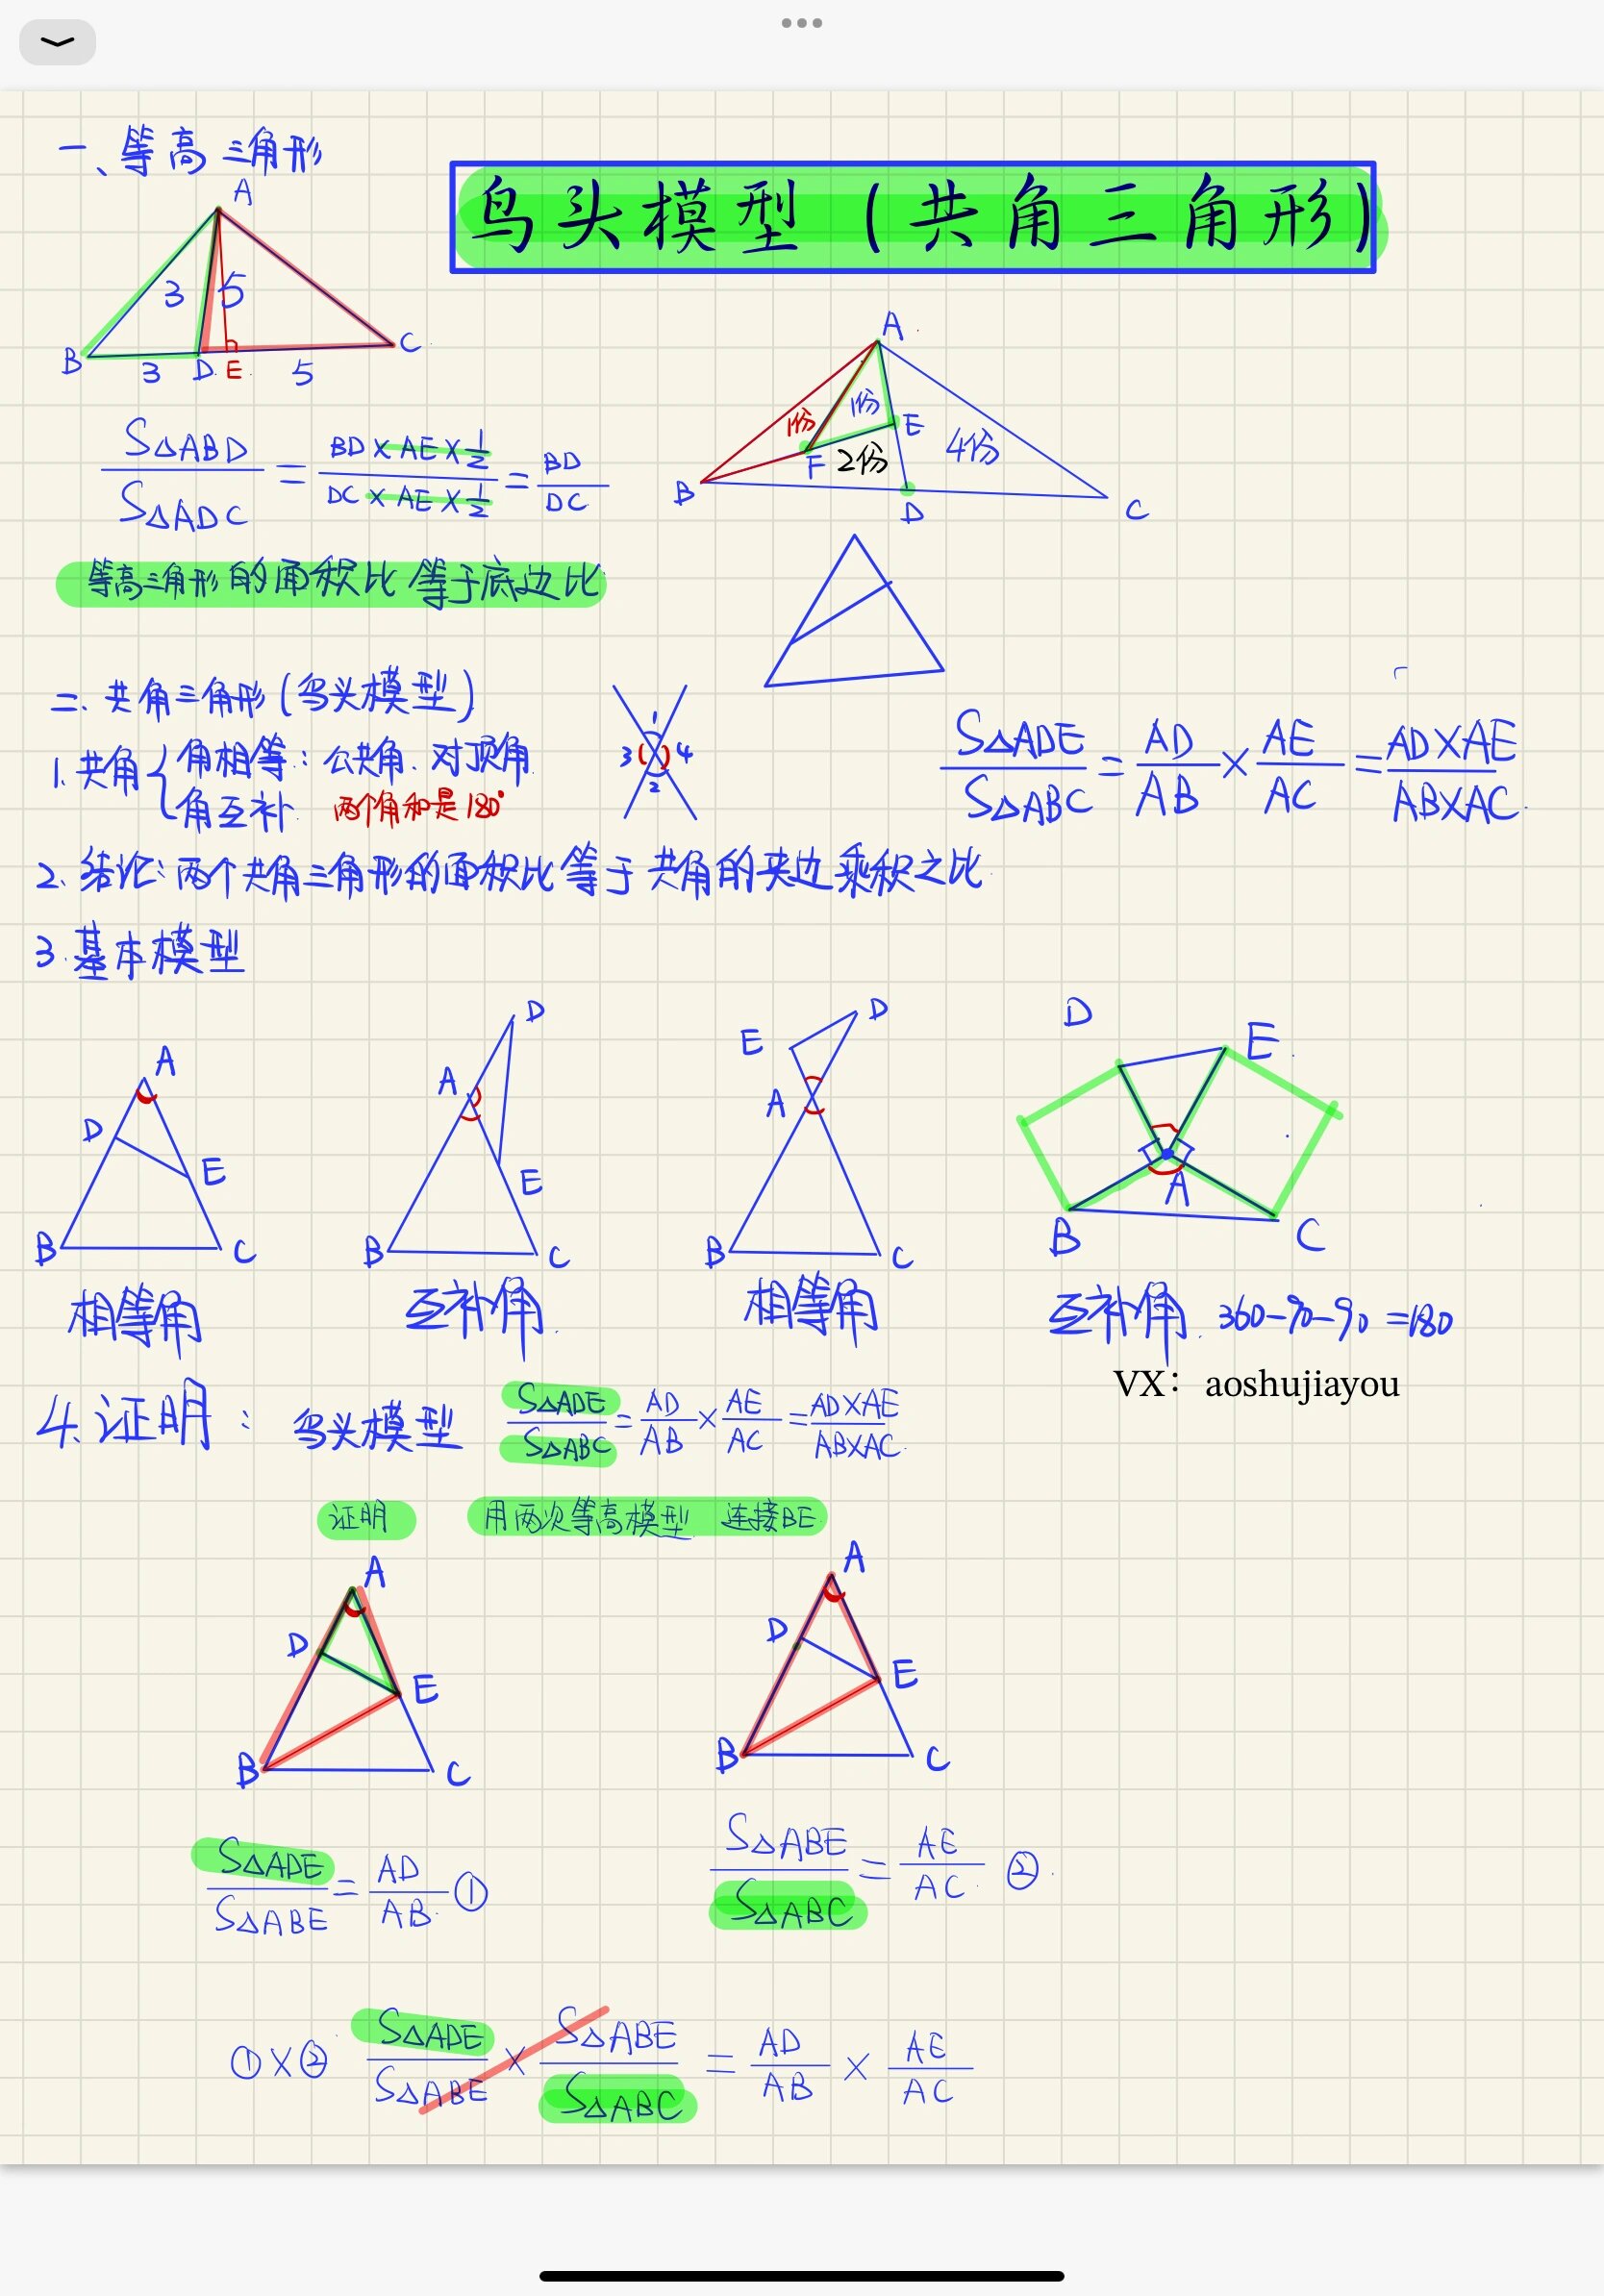 一、等高三角形
鸟头模型(共角三角形)
A
3 5
B 3 D E 5 C
S△ABD/S△ADC = BD×AE×1/2 / DC×AE×1/2 = BD/DC
等高三角形的面积比等于底边比
A
1份 1份 E 4份
F 2份
B D C
二、共角三角形(鸟头模型)
1.共角{角相等:公共角、对顶角
角互补 两个角和是180°
1
3 4
2
S△ADE/S△ABC = AD/AB × AE/AC = AD×AE/AB×AC
2、结论:两个共角三角形的面积比等于共角的夹边乘积之比
3.基本模型
A
D
E
B C
相等角
D
A
E
B C
互补角
E D
A
B C
相等角
D E
A
B C
互补角 360-90-90=180
VX:aoshujiayou
4.证明:鸟头模型 S△ADE/S△ABC = AD/AB × AE/AC = AD×AE/AB×AC
证明 用两次等高模型 连接BE
A
D
E
B C
A
D
E
B C
S△ADE/S△ABE = AD/AB ①
S△ABE/S△ABC = AE/AC ②
①×② S△ADE/S△ABE × S△ABE/S△ABC = AD/AB × AE/AC